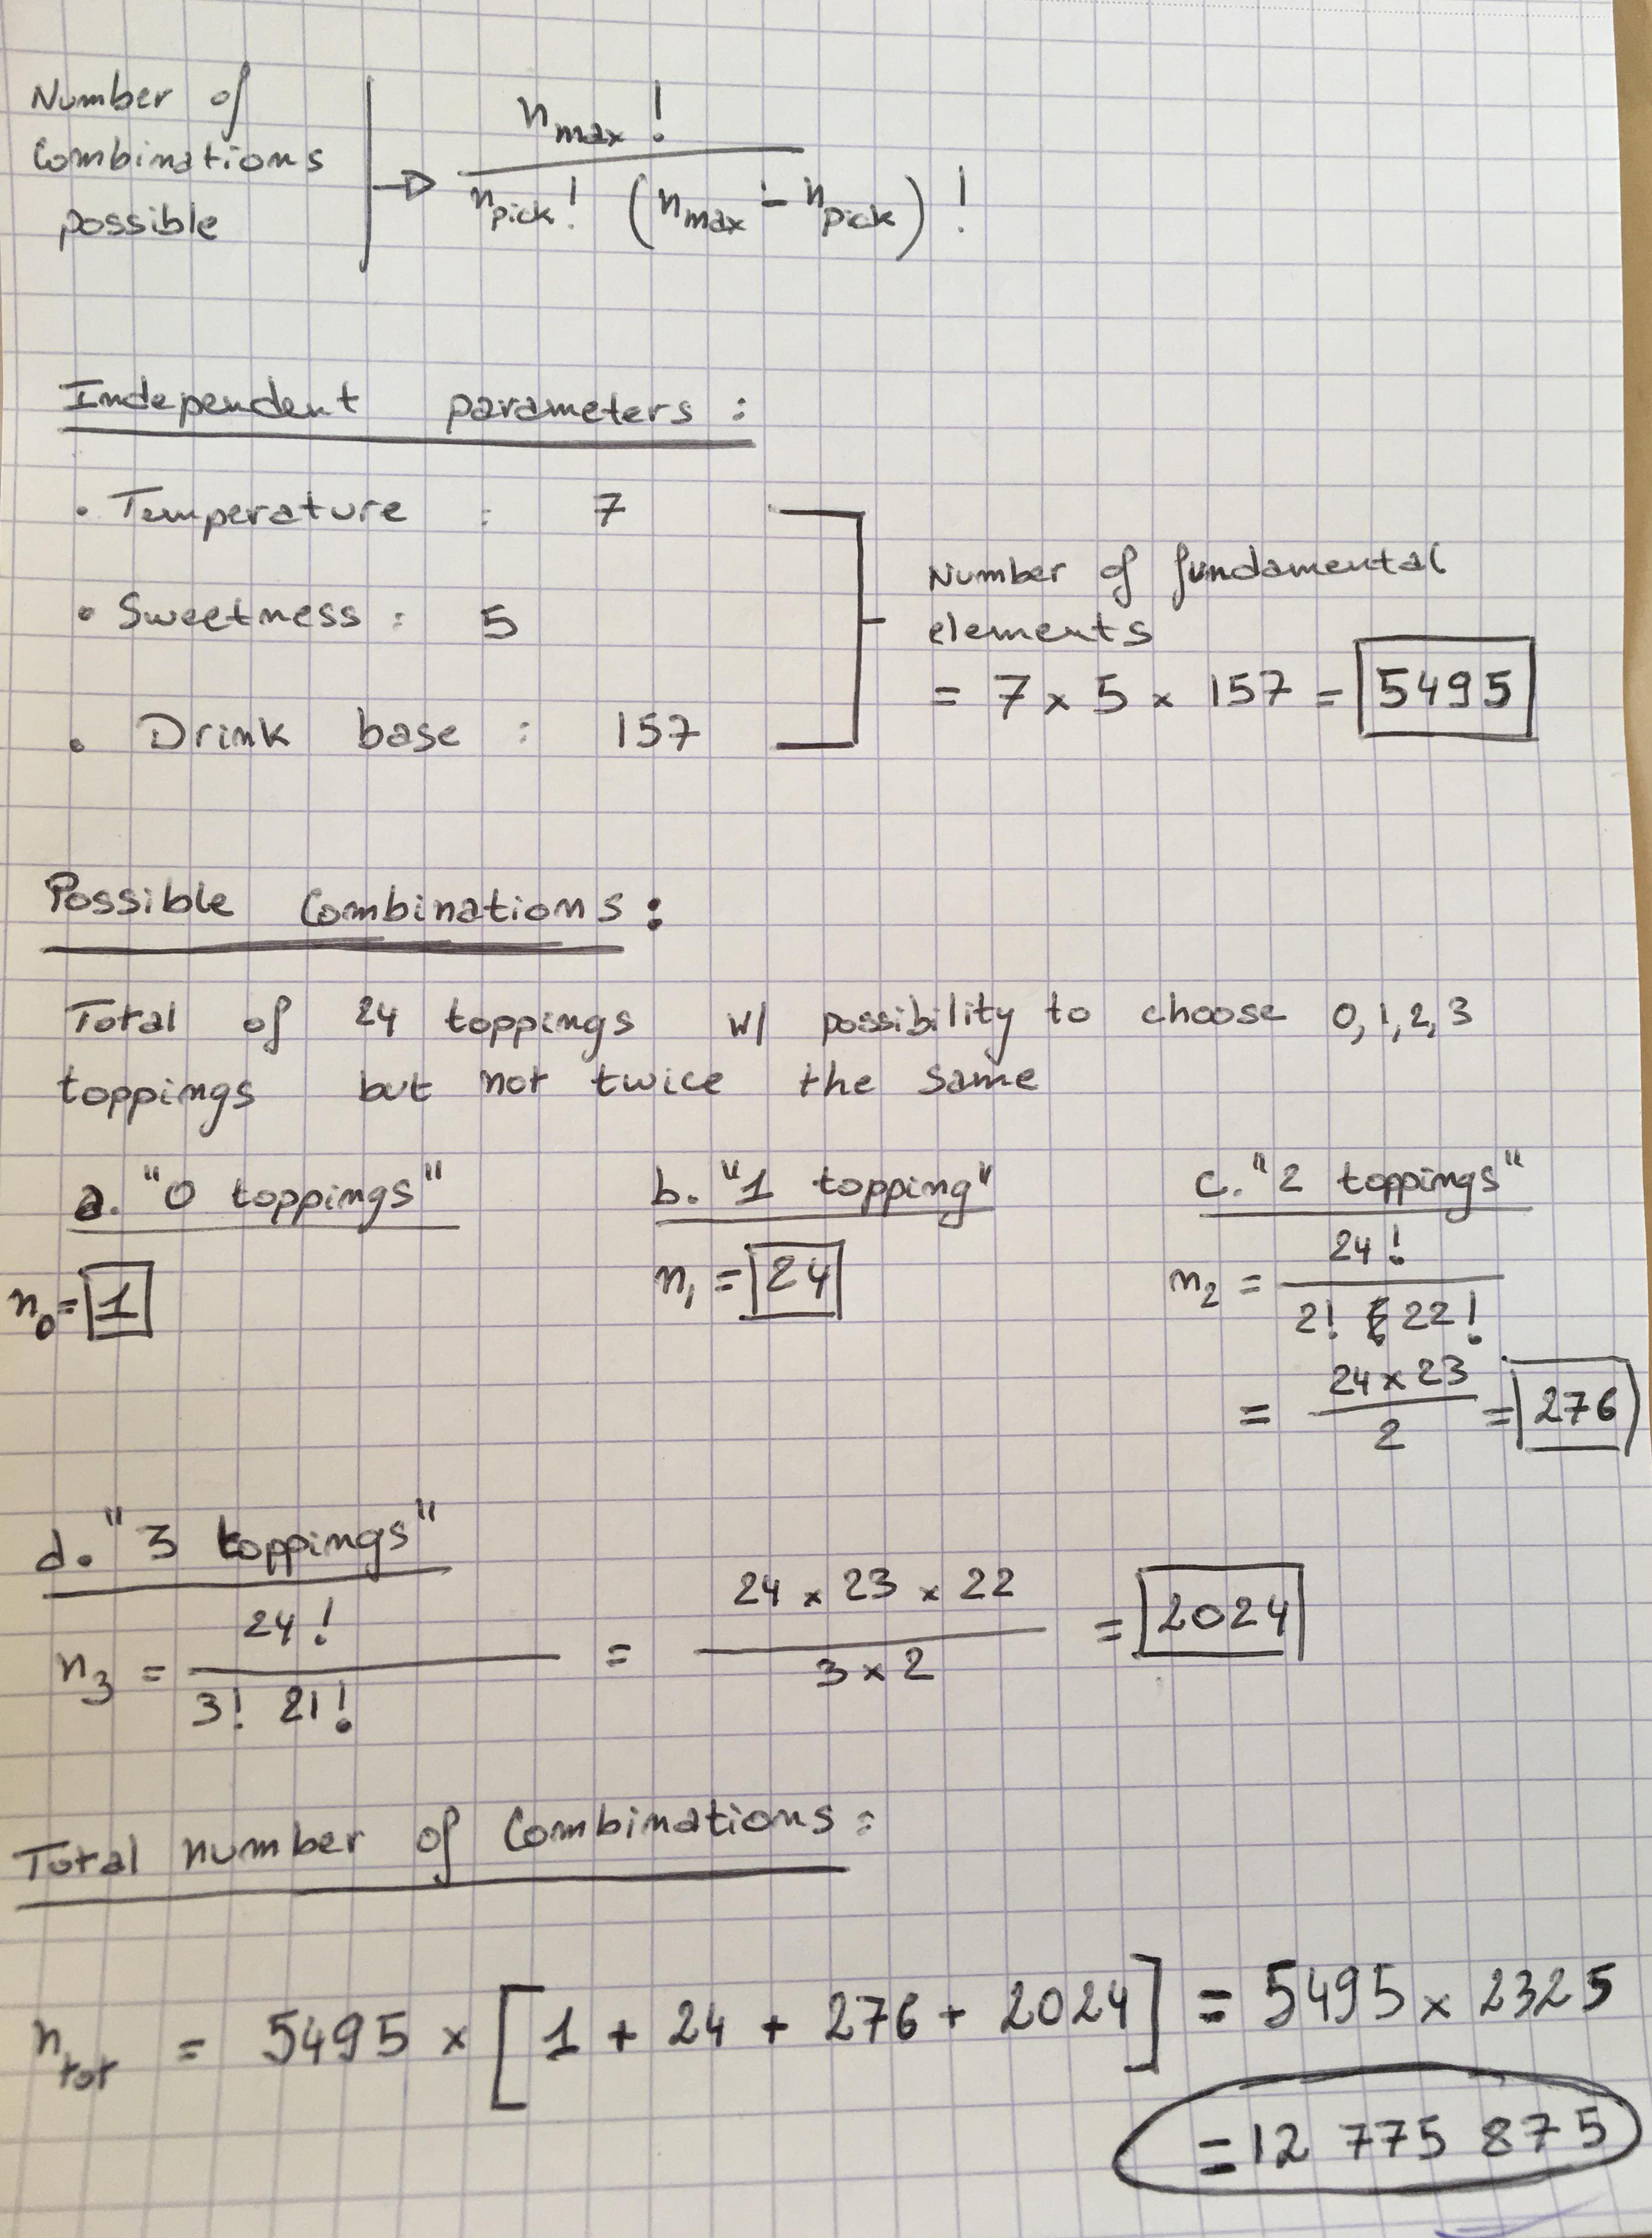 Number of
Combinations
possible
→ n_max ! / n_pick ! (n_max - n_pick) !
Independent parameters :
• Temperature : 7
• Sweetness : 5
• Drink base : 157
Number of fundamental
elements
= 7 x 5 x 157 = 5495
Possible Combinations :
Total of 24 toppings w/ possibility to choose 0, 1, 2, 3
toppings but not twice the same
a. "0 toppings"
n₀ = 1
b. "1 topping"
n₁ = 24
c. "2 toppings"
n₂ = 24 ! / 2! 22 !
= 24 x 23 / 2 = 276
d. "3 toppings"
n₃ = 24 ! / 3! 21 ! = 24 x 23 x 22 / 3 x 2 = 2024
Total number of Combinations :
n_tot = 5495 x [1 + 24 + 276 + 2024] = 5495 x 2325
= 12 775 875